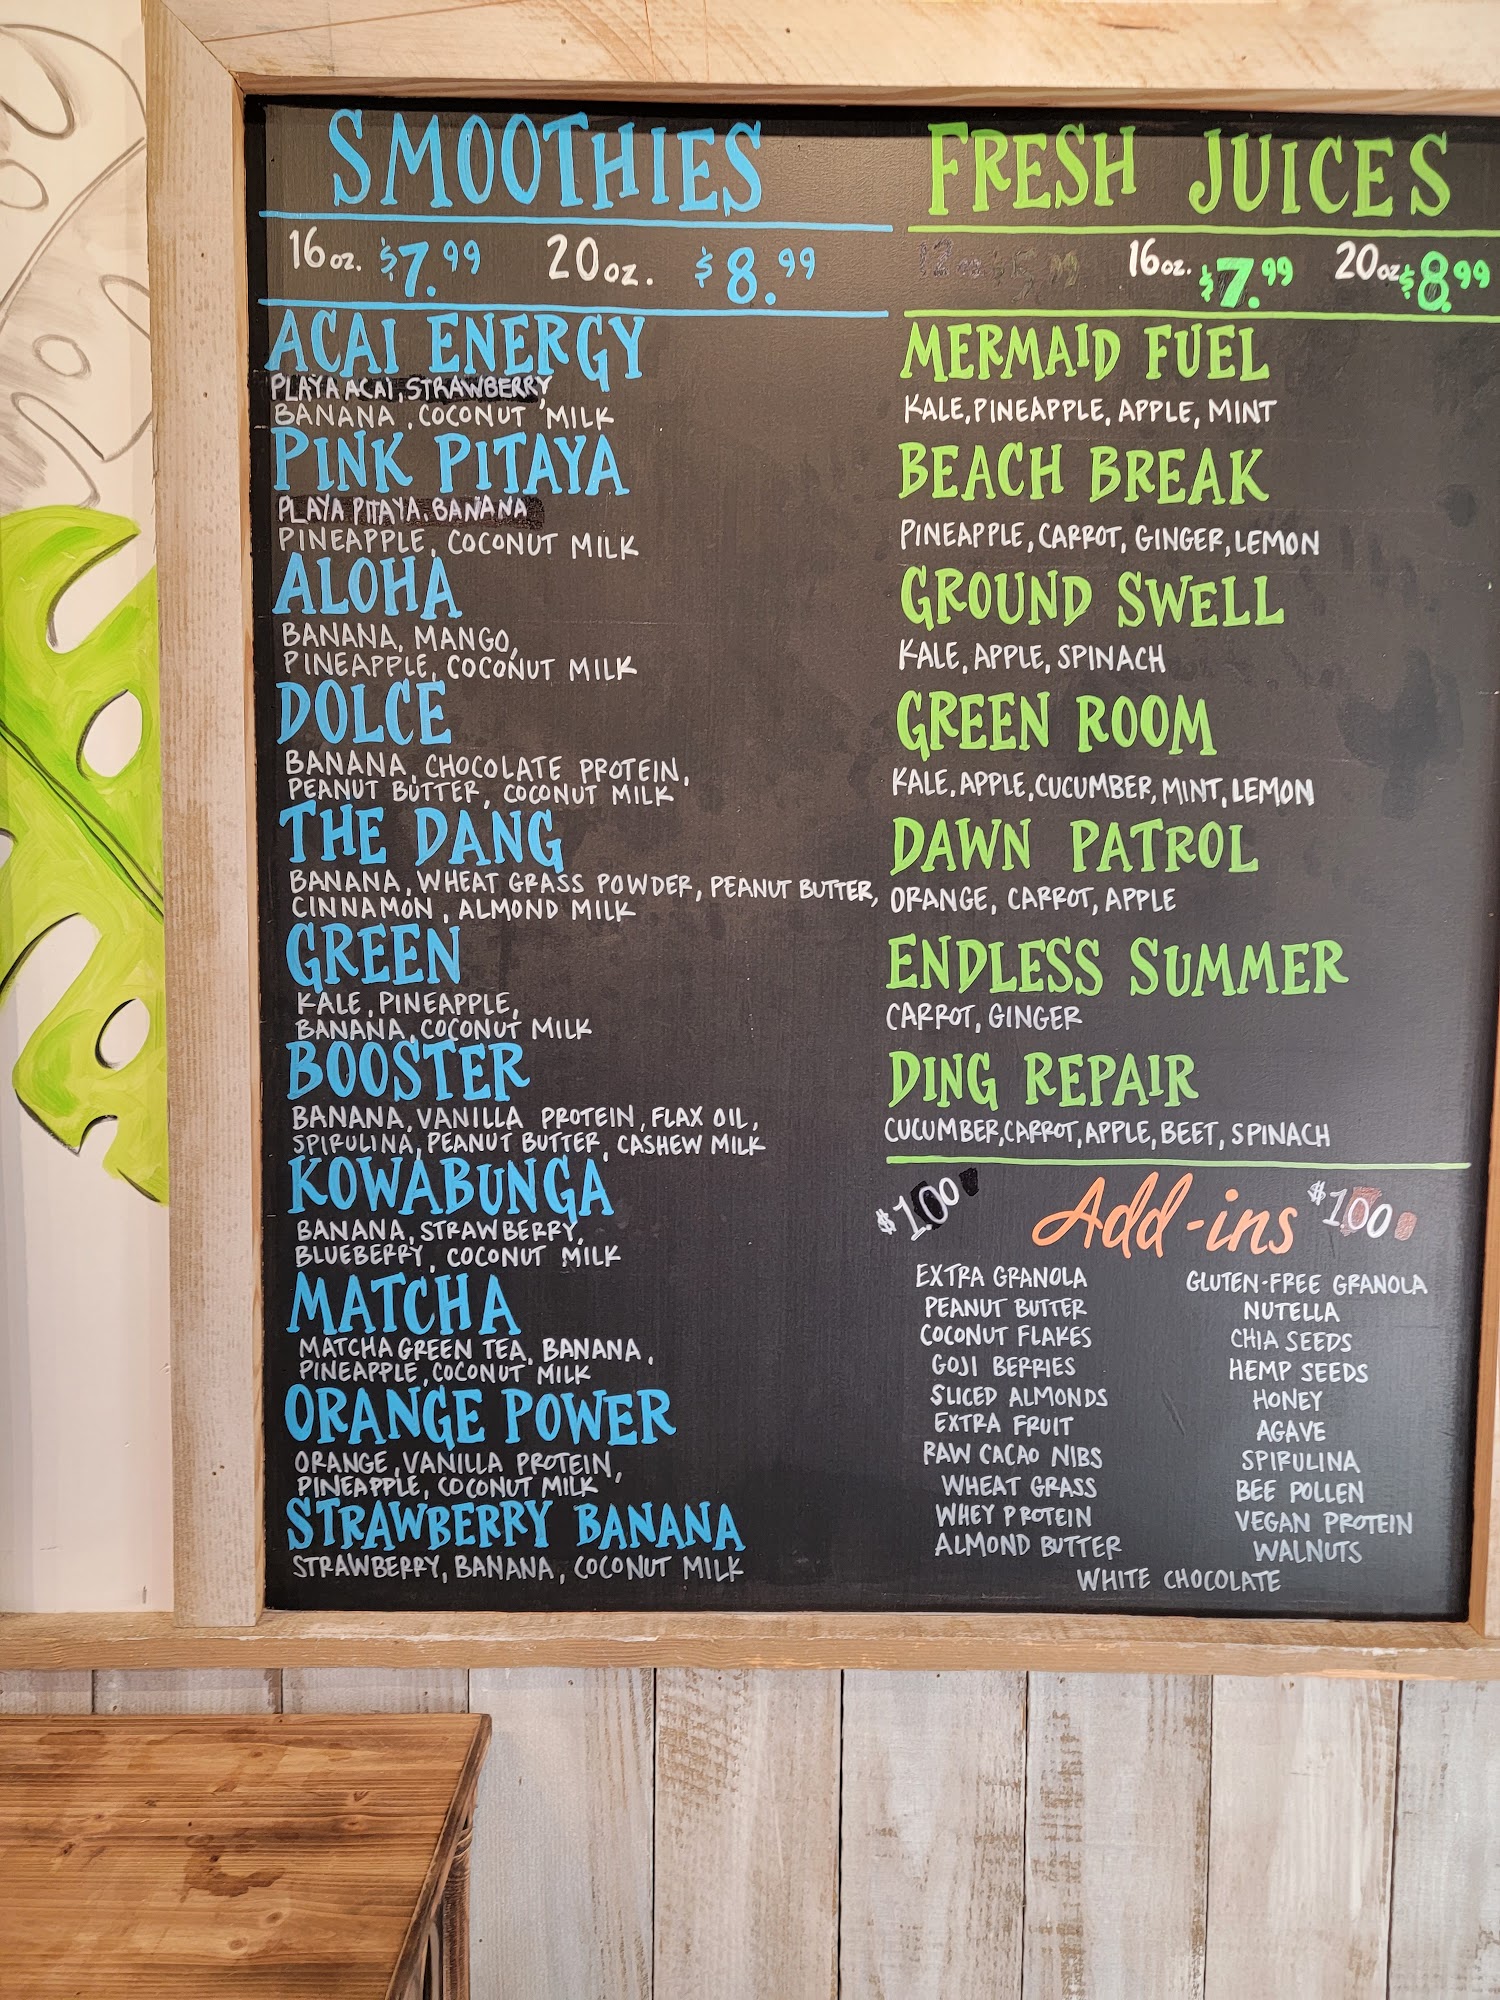 SMOOTHIES
16 oz. $7.99 20 oz. $8.99
ACAI ENERGY
PLAYA ACAI, STRAWBERRY,
BANANA, COCONUT MILK
PINK PITAYA
PLAYA PITAYA, BANANA
PINEAPPLE, COCONUT MILK
ALOHA
BANANA, MANGO,
PINEAPPLE, COCONUT MILK
DOLCE
BANANA, CHOCOLATE PROTEIN,
PEANUT BUTTER, COCONUT MILK
THE DANG
BANANA, WHEAT GRASS POWDER, PEANUT BUTTER,
CINNAMON, ALMOND MILK
GREEN
KALE, PINEAPPLE,
BANANA, COCONUT MILK
BOOSTER
BANANA, VANILLA PROTEIN, FLAX OIL,
SPIRULINA, PEANUT BUTTER, CASHEW MILK
KOWABUNGA
BANANA, STRAWBERRY,
BLUEBERRY, COCONUT MILK
MATCHA
MATCHA GREEN TEA, BANANA,
PINEAPPLE, COCONUT MILK
ORANGE POWER
ORANGE, VANILLA PROTEIN,
PINEAPPLE, COCONUT MILK
STRAWBERRY BANANA
STRAWBERRY, BANANA, COCONUT MILK
FRESH JUICES
12 oz $5.99 16 oz. $7.99 20 oz $8.99
MERMAID FUEL
KALE, PINEAPPLE, APPLE, MINT
BEACH BREAK
PINEAPPLE, CARROT, GINGER, LEMON
GROUND SWELL
KALE, APPLE, SPINACH
GREEN ROOM
KALE, APPLE, CUCUMBER, MINT, LEMON
DAWN PATROL
ORANGE, CARROT, APPLE
ENDLESS SUMMER
CARROT, GINGER
DING REPAIR
CUCUMBER, CARROT, APPLE, BEET, SPINACH
$1.00 Add-ins $1.00
EXTRA GRANOLA
PEANUT BUTTER
COCONUT FLAKES
GOJI BERRIES
SLICED ALMONDS
EXTRA FRUIT
RAW CACAO NIBS
WHEAT GRASS
WHEY PROTEIN
ALMOND BUTTER
GLUTEN-FREE GRANOLA
NUTELLA
CHIA SEEDS
HEMP SEEDS
HONEY
AGAVE
SPIRULINA
BEE POLLEN
VEGAN PROTEIN
WALNUTS
WHITE CHOCOLATE